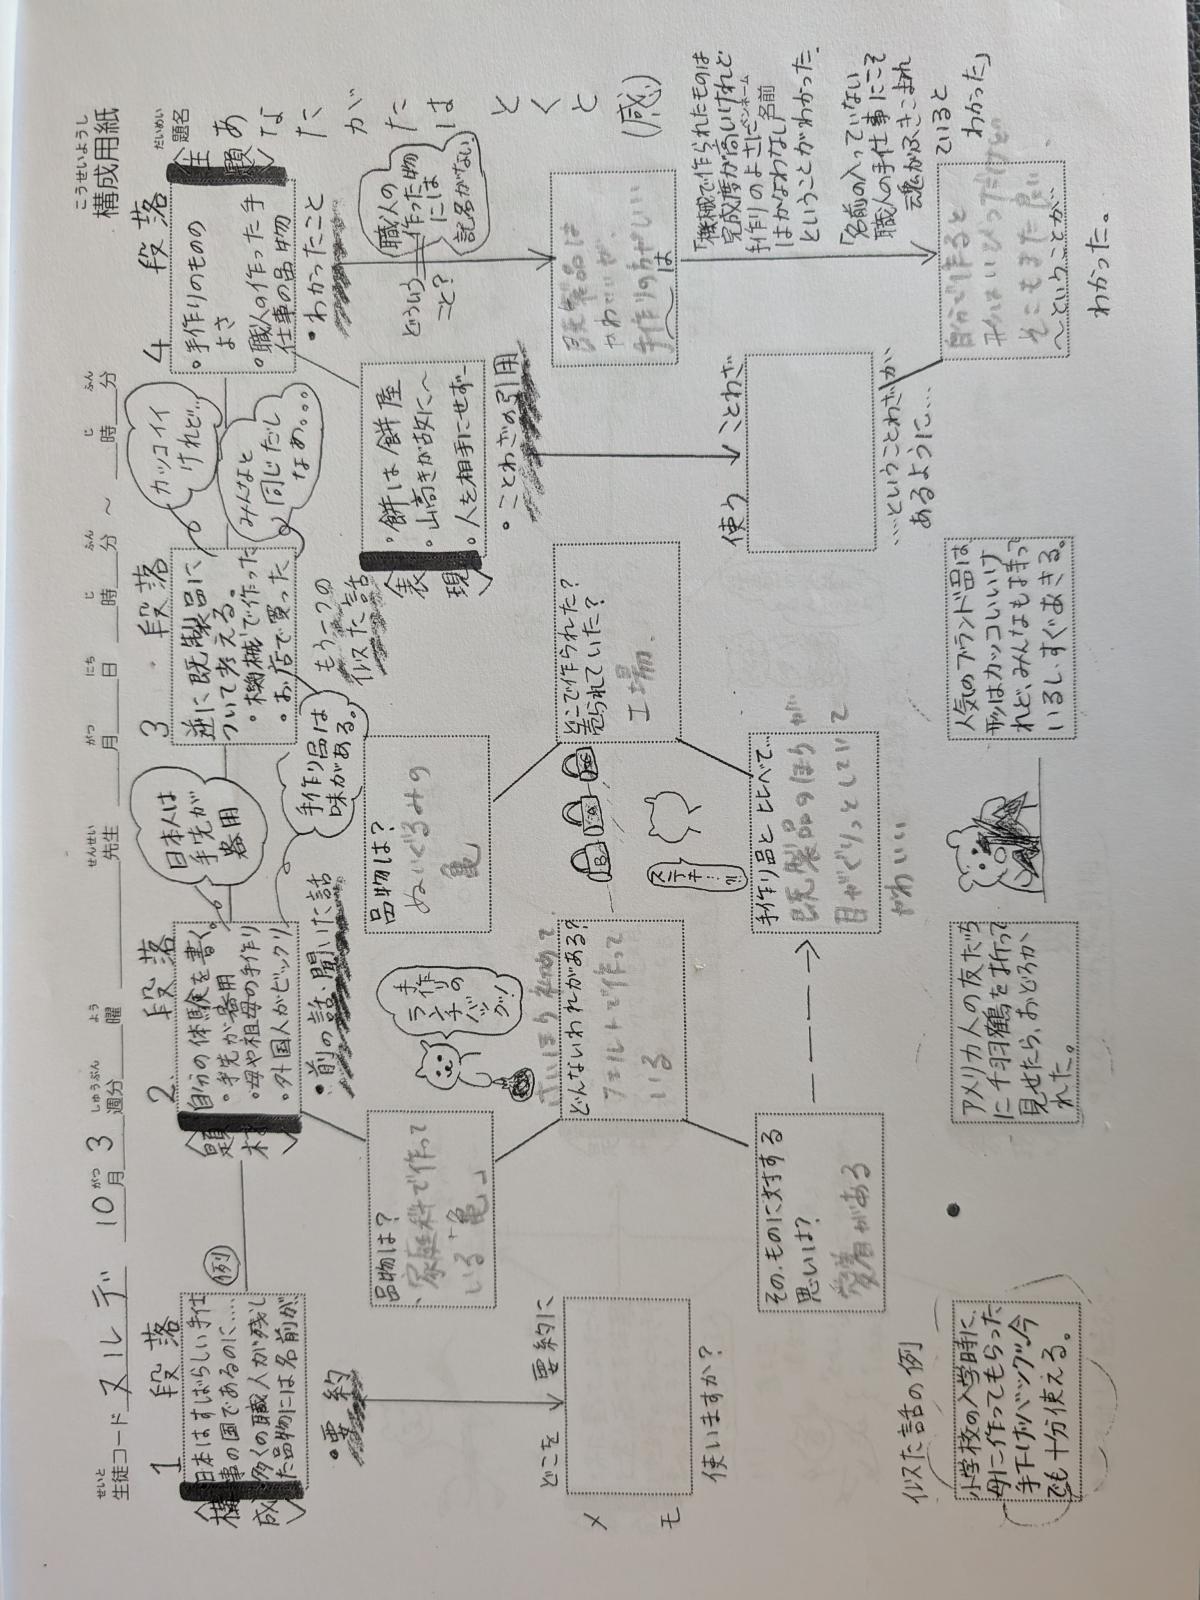 こうせいようし
構成用紙
せいと
生徒コード ヌルデ 10月 3週分 曜 先生 月 日 時 分 ～ 時 分
がつ しゅうぶん よう せんせい がつ にち じ ふん じ ふん
1 段落
構成
・日本はすばらしい手仕
事の国であるのに……
・多くの職人が残し
た品物には名前が、
例
・要約
どこを 要約に
使いますか？
メモ
似た話の例
小学校の入学時に、
母に作ってもらった
手下げバッグ、今
でも十分使える。
2 段落
題材
自分の体験を書く。
・手先が器用
・母や祖母の手作り
・外国人がビックリ
日本人は
手先が
器用
手作り品は
味がある。
・前の話、聞いた話
品物は？
家庭科で作って
いる「亀」
手作り
ランチ
バッグ！
どんないわれがある？
フェルトで作って
いる
その、ものに対する
思いは？
愛着がある
アメリカ人の友だち
に千羽鶴を折って
見せたら、おどろか
れた。
3 段落
逆に既製品に
ついて考える。
・機械で作った
・お店で買った
カッコイイ
けれど…
みんなと
同じだし
なぁ。。。
もう一つの
似た話
品物は？
ぬいぐるみの
亀
どこで作られた？
売られていた？
工場
ステキ…!!
手作り品と比べて…
既製品のほうが
目がぐりっとしていて
かわいい
人気のブランド品は
形はカッコいいけ
れど、みんなも持って
いるし、すぐあきる。
4 段落
・手作りのものの
よさ
・職人の作った手
仕事の品物
表現
・餅は餅屋
・山高きが故に～
・人を相手にせず…
・ことわざの引用
使う ことわざ
…ということわざが
あるように…
・わかったこと
どういう
こと？
職人の
作った物
には
記名がない
既製品は
かわいいが、
手作りのがいい
～は
「機械で作られたものは
完成度が高いけれど
手作りのよさに
はかなわない」
ということがわかった。
ペンネーム
名前
「名前の入っていない
職人の手仕事にこそ
魂がふきこまれ
ていると
わかった」
自分で作ると
そこもまた良い
～ということが、
わかった。
だいめい
題名
主題
あなたがたは
とくと
(感)